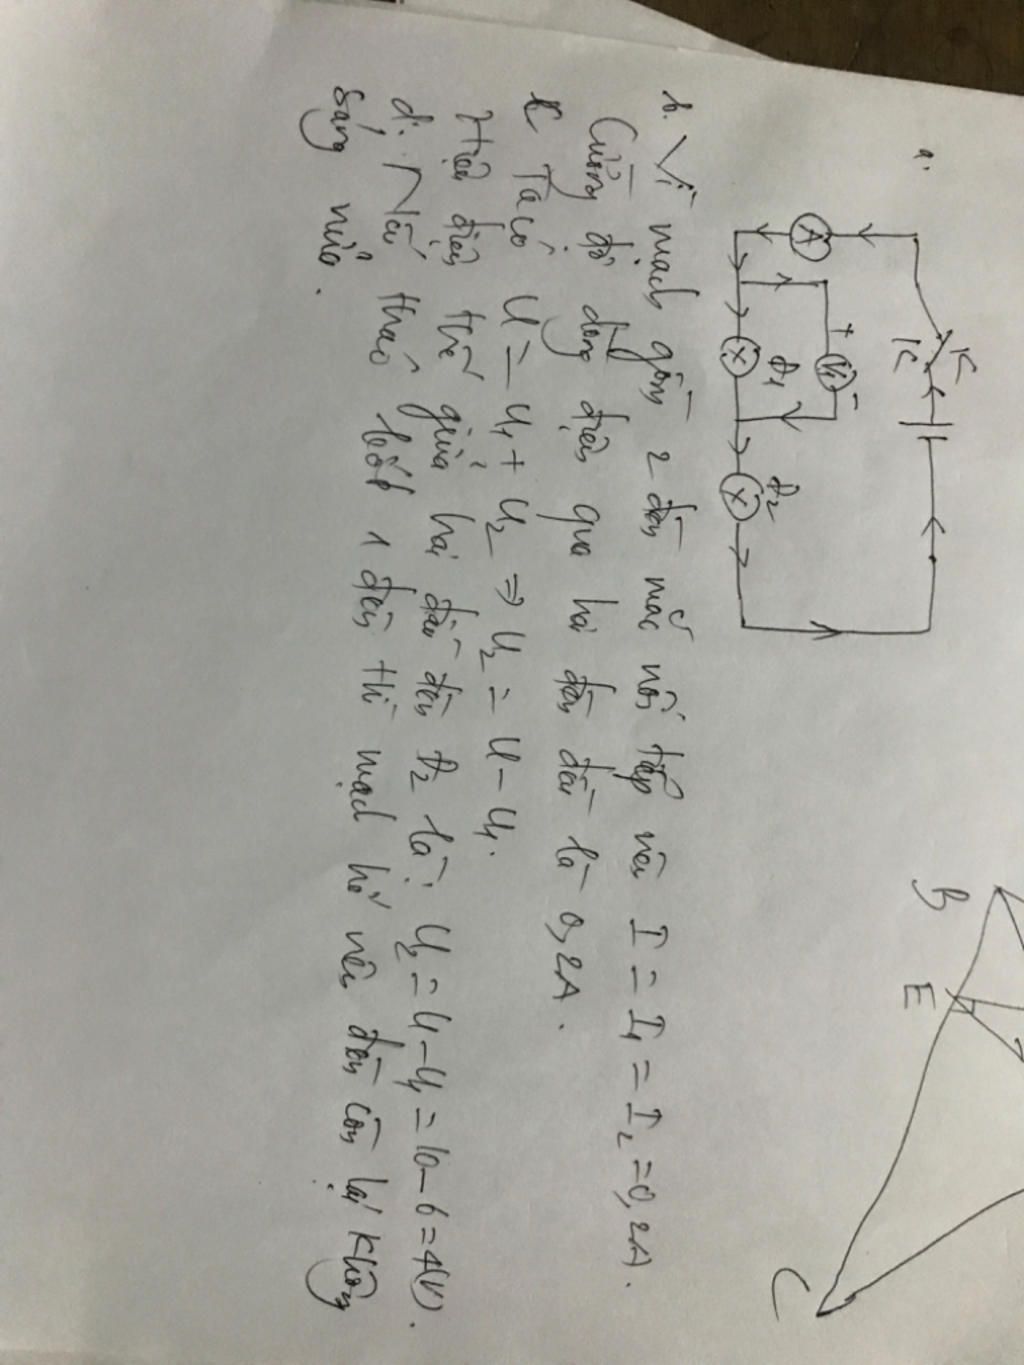 a.
K
K
A
+ V1 -
Đ1
Đ2
X
X
b. Vì mạch gồm 2 đèn mắc nối tiếp nên I = I1 = I2 = 0,2A.
Cường độ dòng điện qua hai đèn đều là 0,2A.
C Ta có U = U1 + U2 => U2 = U - U1.
Hiệu điện thế giữa hai đầu đèn Đ2 là: U2 = U - U1 = 10 - 6 = 4(V).
d. Nếu tháo bớt 1 đèn thì mạch hở nên đèn còn lại không
sáng nữa.
B
E
C